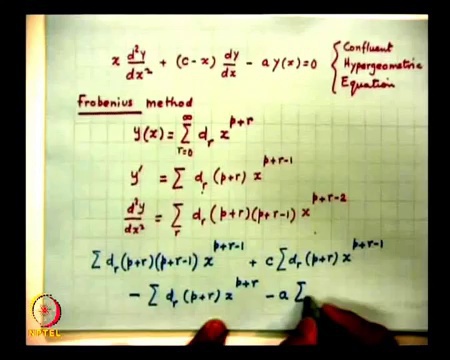 x d²y/dx² + (c-x) dy/dx - a y(x) = 0 { Confluent
Hypergeometric
Equation
Frobenius method
y(x) = ∑_{r=0}^{∞} d_r x^{p+r}
y' = ∑ d_r (p+r) x^{p+r-1}
d²y/dx² = ∑_r d_r (p+r)(p+r-1) x^{p+r-2}
∑ d_r (p+r)(p+r-1) x^{p+r-1} + c ∑ d_r (p+r) x^{p+r-1}
- ∑ d_r (p+r) x^{p+r} - a ∑
NPTEL